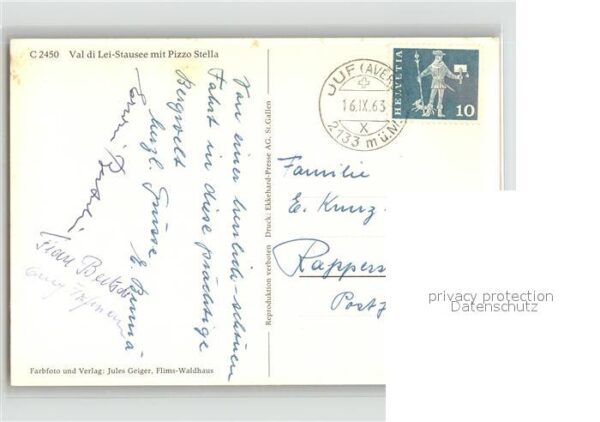 C 2450 Val di Lei-Stausee mit Pizzo Stella
Von einer herrlich-schönen
Fahrt in diese prächtige
Bergwelt
herzl. Grüsse
E.
Frau
Reproduktion verboten Druck: Ekkehard-Presse AG, St. Gallen
JUF (AVERS)
16.IX.63
X
2133 m ü.M.
HELVETIA
10
Familie
E. Kunz-
Rappers
Postf
privacy protection
Datenschutz
Farbfoto und Verlag: Jules Geiger, Flims-Waldhaus